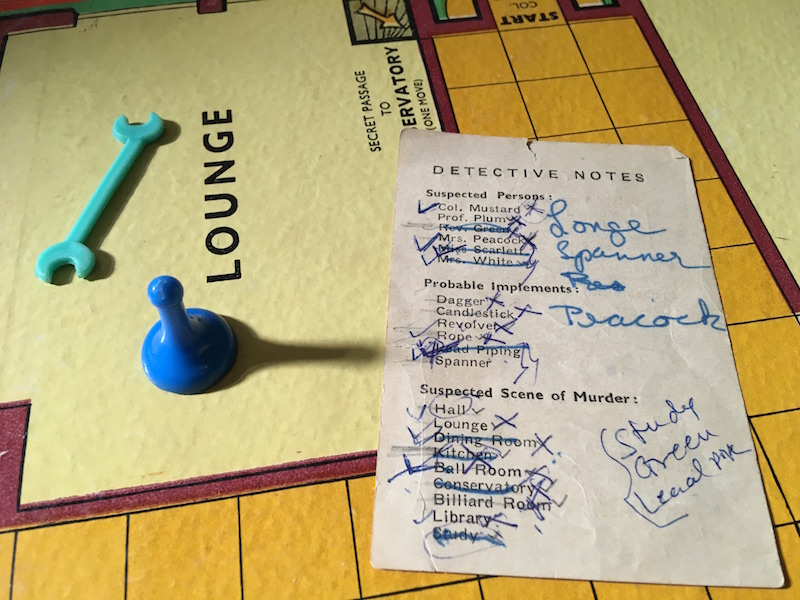 START
COL.
SECRET PASSAGE
TO
ERVATORY
(ONE MOVE)
LOUNGE
DETECTIVE NOTES
Suspected Persons:
Col. Mustard
Prof. Plum
Rev. Green
Mrs. Peacock
Miss Scarlett
Mrs. White
Longe
Spanner
Peacock
Probable Implements:
Dagger
Candlestick
Revolver
Rope
Lead Piping
Spanner
Suspected Scene of Murder:
Hall
Lounge
Dining Room
Kitchen
Ball Room
Conservatory
Billiard Room
Library
Study
Study
Green
Lead pipe